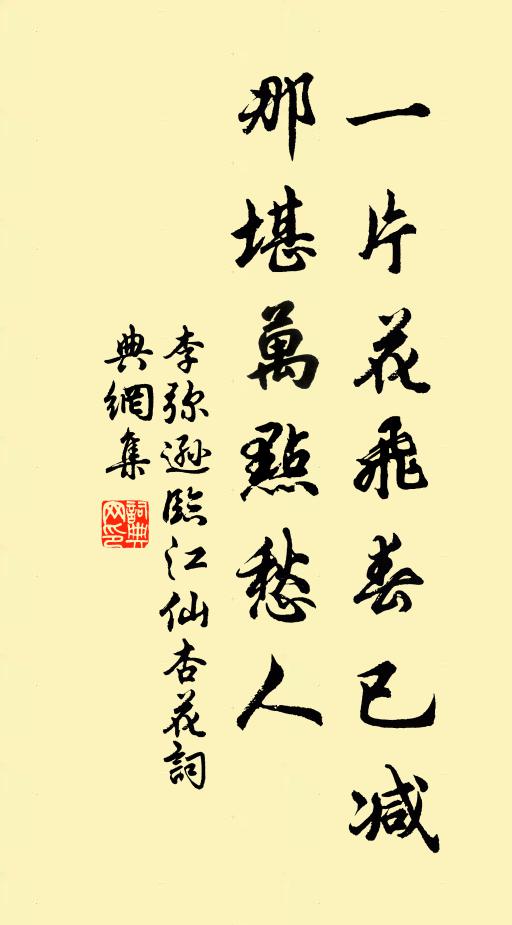 一片花飛春已減
那堪萬點愁人
李弥遜臨江仙杏花詞
典網集
詞典網印